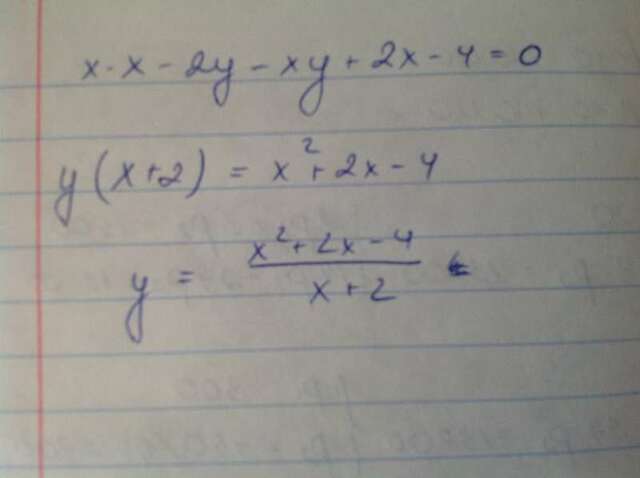 x·x-2y-xy+2x-4=0
y(x+2)=x²+2x-4
y=(x²+2x-4)/(x+2)